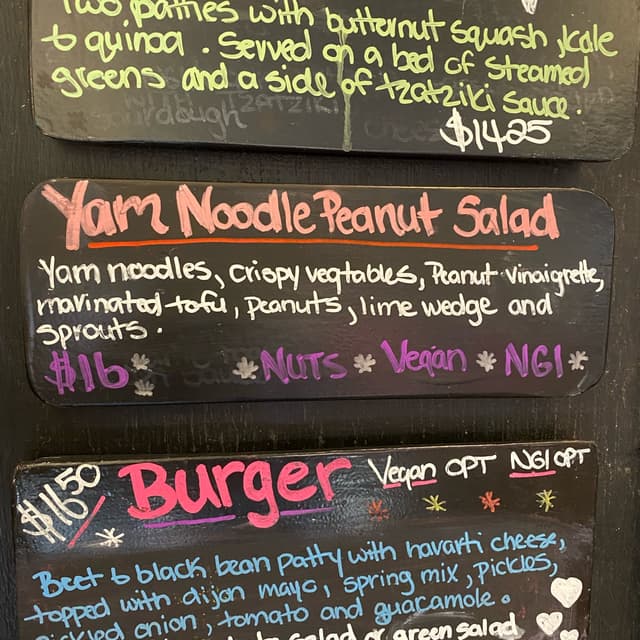 Two patties with butternut squash, kale
& quinoa. Served on a bed of steamed
greens and a side of tzatziki sauce.
$1425
Yam Noodle Peanut Salad
Yam noodles, crispy vegtables, Peanut vinaigrette,
marinated tofu, peanuts, lime wedge and
sprouts.
$16 * * NUTS * Vegan * NGI *
$16 50 Burger Vegan OPT NGI OPT
Beet & black bean patty with havarti cheese,
topped with dijon mayo, spring mix, pickles,
pickled onion, tomato and guacamole.
salad or green salad